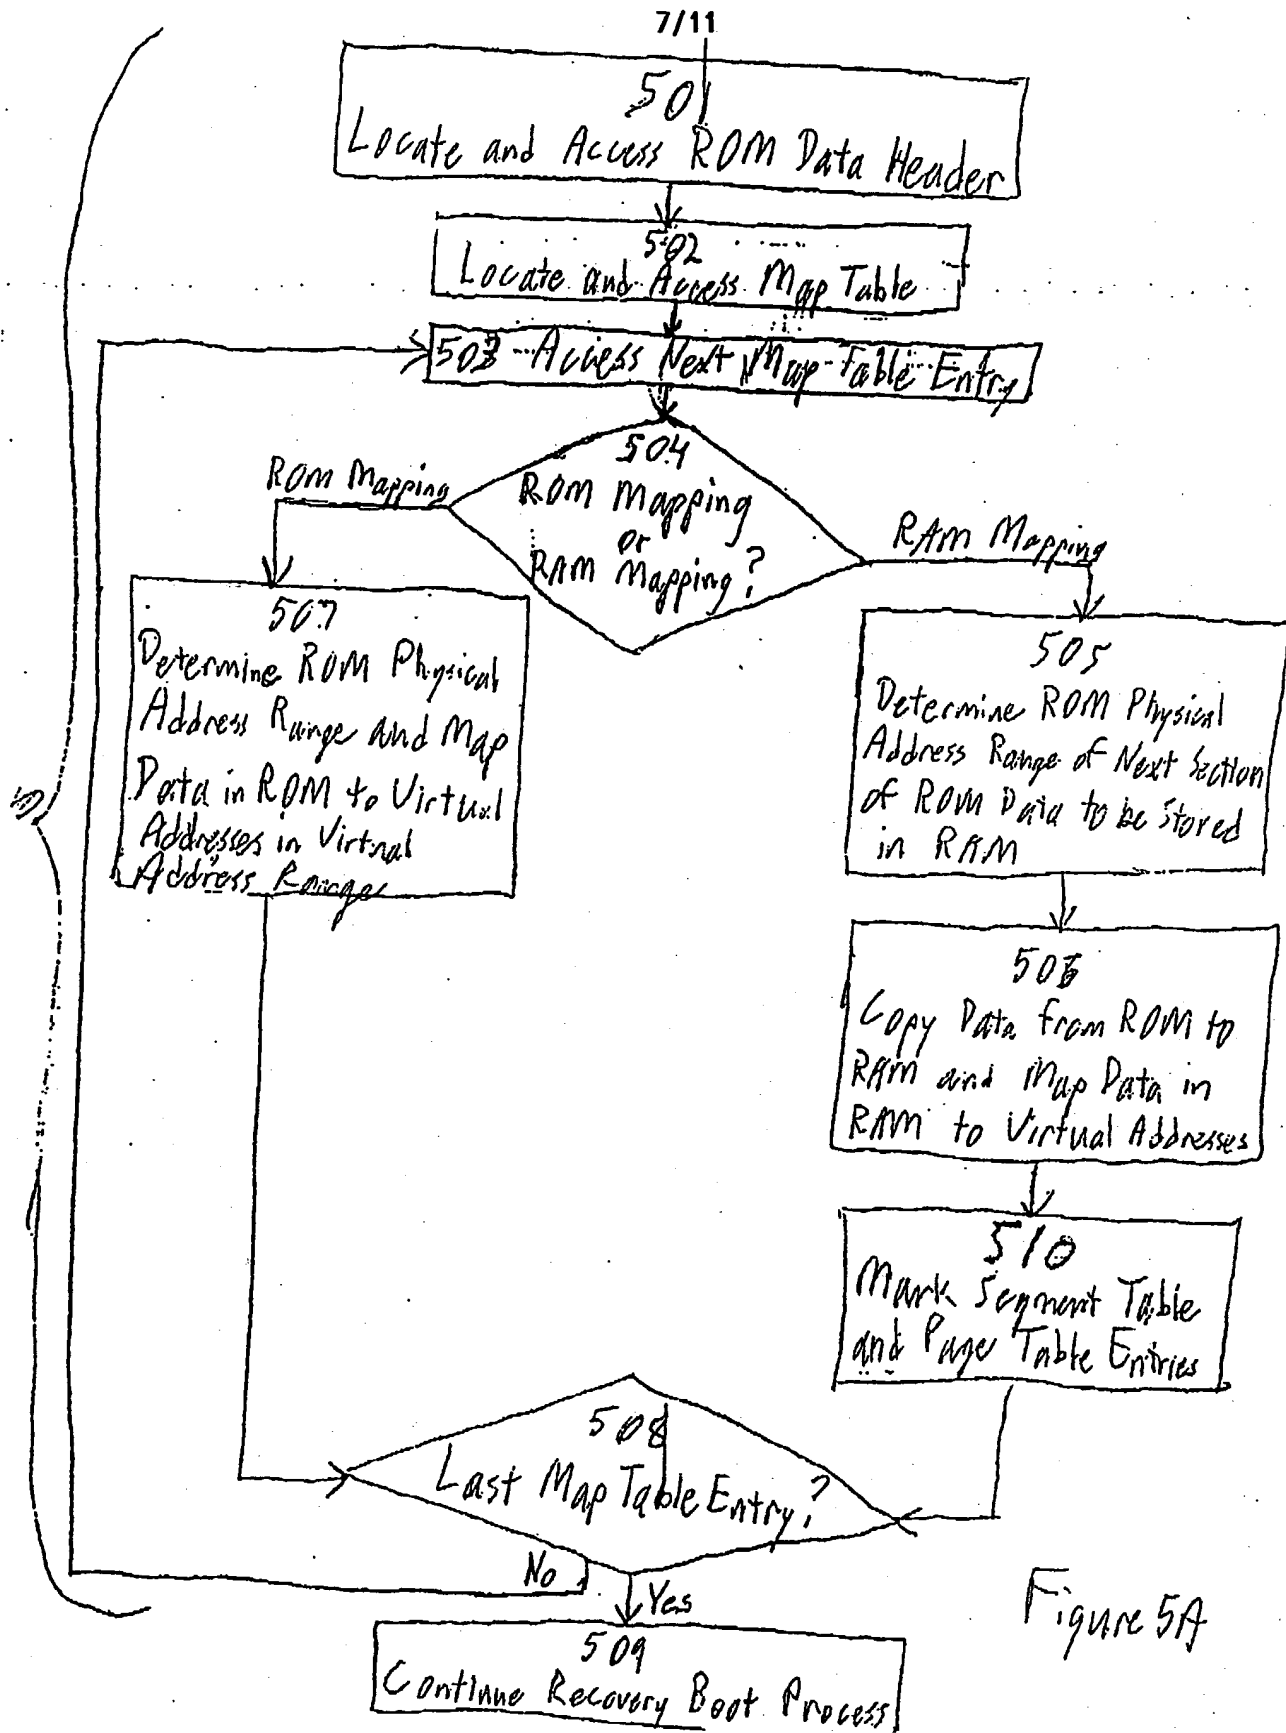 7/11
501
Locate and Access ROM Data Header
502
Locate and Access Map Table
503 Access Next Map Table Entry
504
ROM Mapping
or
RAM Mapping?
ROM Mapping
RAM Mapping
507
Determine ROM Physical
Address Range and Map
Data in ROM to Virtual
Addresses in Virtual
Address Range
505
Determine ROM Physical
Address Range of Next Section
of ROM Data to be Stored
in RAM
506
Copy Data from ROM to
RAM and Map Data in
RAM to Virtual Addresses
510
Mark Segment Table
and Page Table Entries
508
Last Map Table Entry?
No
Yes
509
Continue Recovery Boot Process
Figure 5A